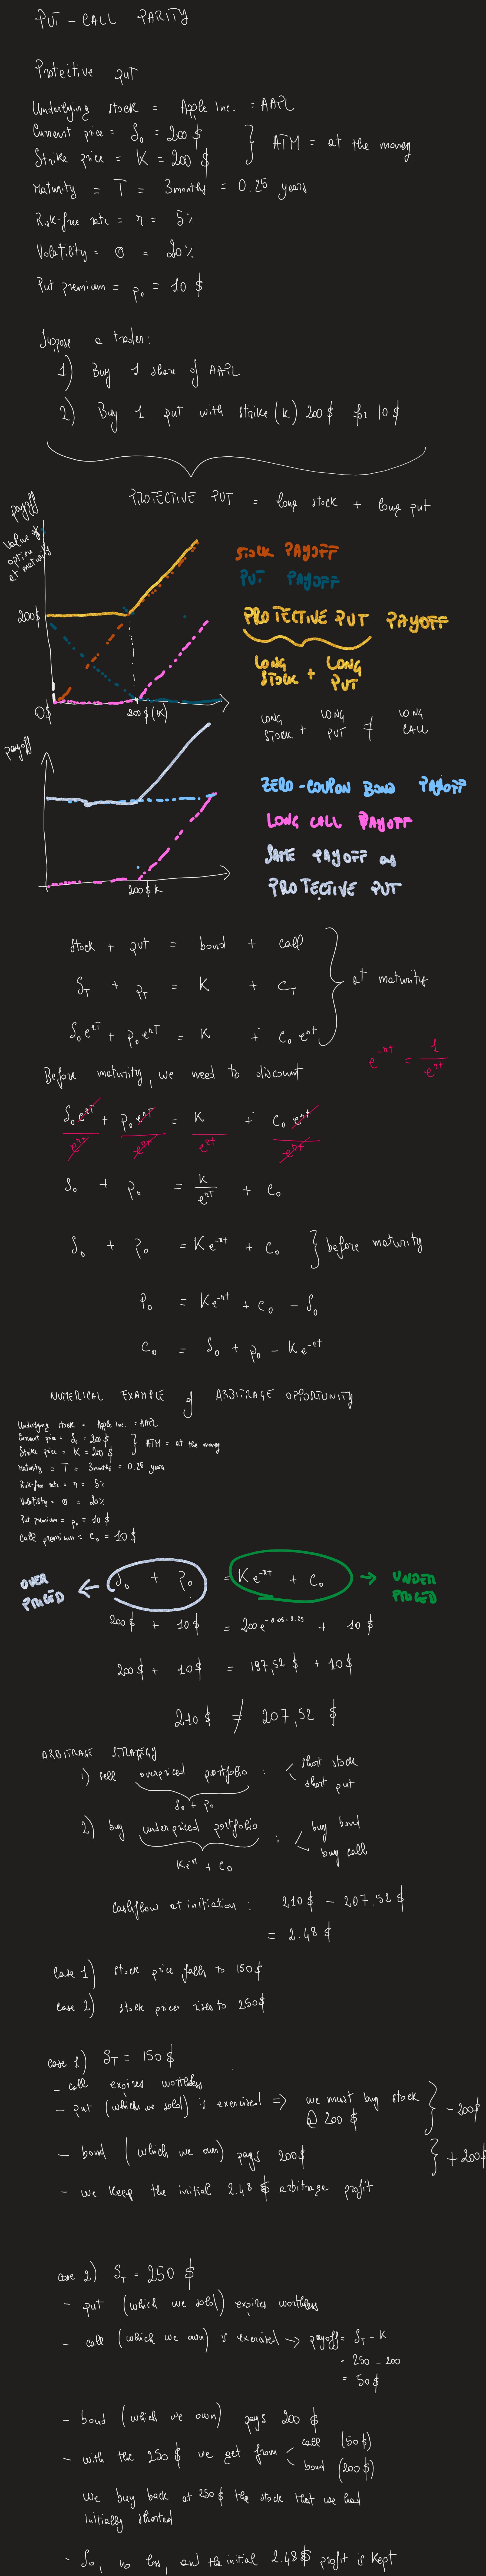 PUT - CALL PARITY
Protective put
Underlying stock = Apple Inc. = AAPL
Current price = S₀ = 200 $
Strike price = K = 200 $
} ATM = at the money
Maturity = T = 3months = 0.25 years
Risk-free rate = r = 5%
Volatility = σ = 20%
Put premium = p₀ = 10 $
Suppose a trader:
1) Buy 1 share of AAPL
2) Buy 1 put with strike (K) 200 $ for 10 $
PROTECTIVE PUT = long stock + long put
payoff
value of option at maturity
200$
0$
200 $ (K)
STOCK PAYOFF
PUT PAYOFF
PROTECTIVE PUT PAYOFF
LONG STOCK + LONG PUT
LONG STOCK + LONG PUT ≠ LONG CALL
payoff
200 $ K
ZERO-COUPON BOND PAYOFF
LONG CALL PAYOFF
SAME PAYOFF as
PROTECTIVE PUT
stock + put = bond + call
S_T + p_T = K + C_T
S₀e^rT + p₀e^rT = K + C₀e^rT
} at maturity
Before maturity, we need to discount
e^-rT = 1/e^rT
S₀e^rT/e^rT + p₀e^rT/e^rT = K/e^rT + C₀e^rT/e^rT
S₀ + p₀ = K/e^rT + C₀
S₀ + p₀ = Ke^-rT + C₀ } before maturity
p₀ = Ke^-rT + C₀ - S₀
C₀ = S₀ + p₀ - Ke^-rT
NUMERICAL EXAMPLE of ARBITRAGE OPPORTUNITY
Underlying stock = Apple Inc. = AAPL
Current price = S₀ = 200 $
Strike price = K = 200 $
} ATM = at the money
Maturity = T = 3months = 0.25 years
Risk-free rate = r = 5%
Volatility = σ = 20%
Put premium = p₀ = 10 $
Call premium = C₀ = 10 $
OVER PRICED ← S₀ + p₀ = Ke^-rT + C₀ → UNDER PRICED
200 $ + 10 $ = 200e^-0.05·0.25 + 10 $
200 $ + 10 $ = 197,52 $ + 10 $
210 $ ≠ 207,52 $
ARBITRAGE STRATEGY
1) sell overpriced portfolio : short stock
short put
S₀ + p₀
2) buy underpriced portfolio : buy bond
buy call
Ke^-rT + C₀
Cashflow at initiation : 210 $ - 207.52 $
= 2.48 $
Case 1) stock price falls to 150 $
Case 2) stock prices rises to 250 $
Case 1) S_T = 150 $
- call expires worthless
- put (which we sold) is exercised => we must buy stock @ 200 $ } - 200$
- bond (which we own) pays 200 $ } + 200$
- we keep the initial 2.48 $ arbitrage profit
Case 2) S_T = 250 $
- put (which we sold) expires worthless
- call (which we own) is exercised → payoff = S_T - K
= 250 - 200
= 50 $
- bond (which we own) pays 200 $
- with the 250 $ we get from call (50 $)
bond (200 $)
we buy back at 250 $ the stock that we had
initially shorted
- So, no loss, and the initial 2.48 $ profit is kept